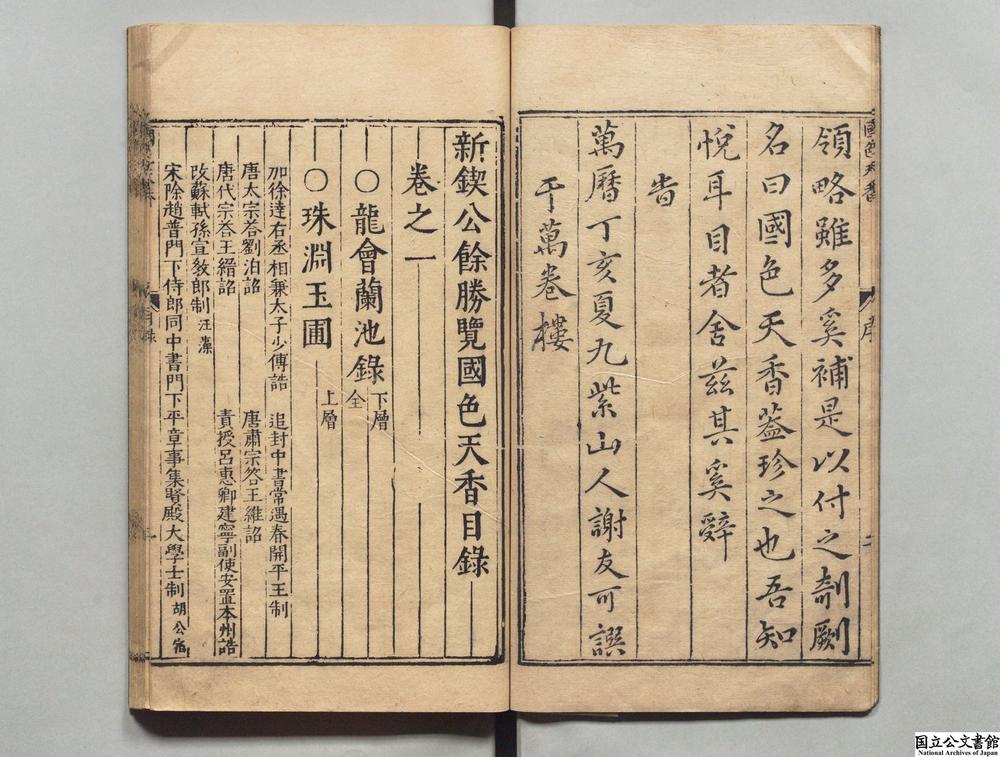 領略雖多奚補是以付之剞劂
名曰國色天香葢珍之也吾知
悅耳目者舍兹其奚辭
旹
萬曆丁亥夏九紫山人謝友可譔
于萬卷樓
國色天香
序
二
新鍥公餘勝覽國色天香目錄
卷之一
○龍會蘭池錄 全 下層
○珠淵玉圃 上層
加徐達右丞相兼太子少傳誥 追封中書常遇春開平王制
唐太宗荅劉洎詔 唐肅宗答王維詔
唐代宗荅王縉詔 責授呂惠卿建寧副使安置本州誥
改蘇軾孫宣敎郎制 汪藻
宋除趙普門下侍郎同中書門下平章事集賢殿大學士制 胡公宿
目錄
国立公文書館
National Archives of Japan